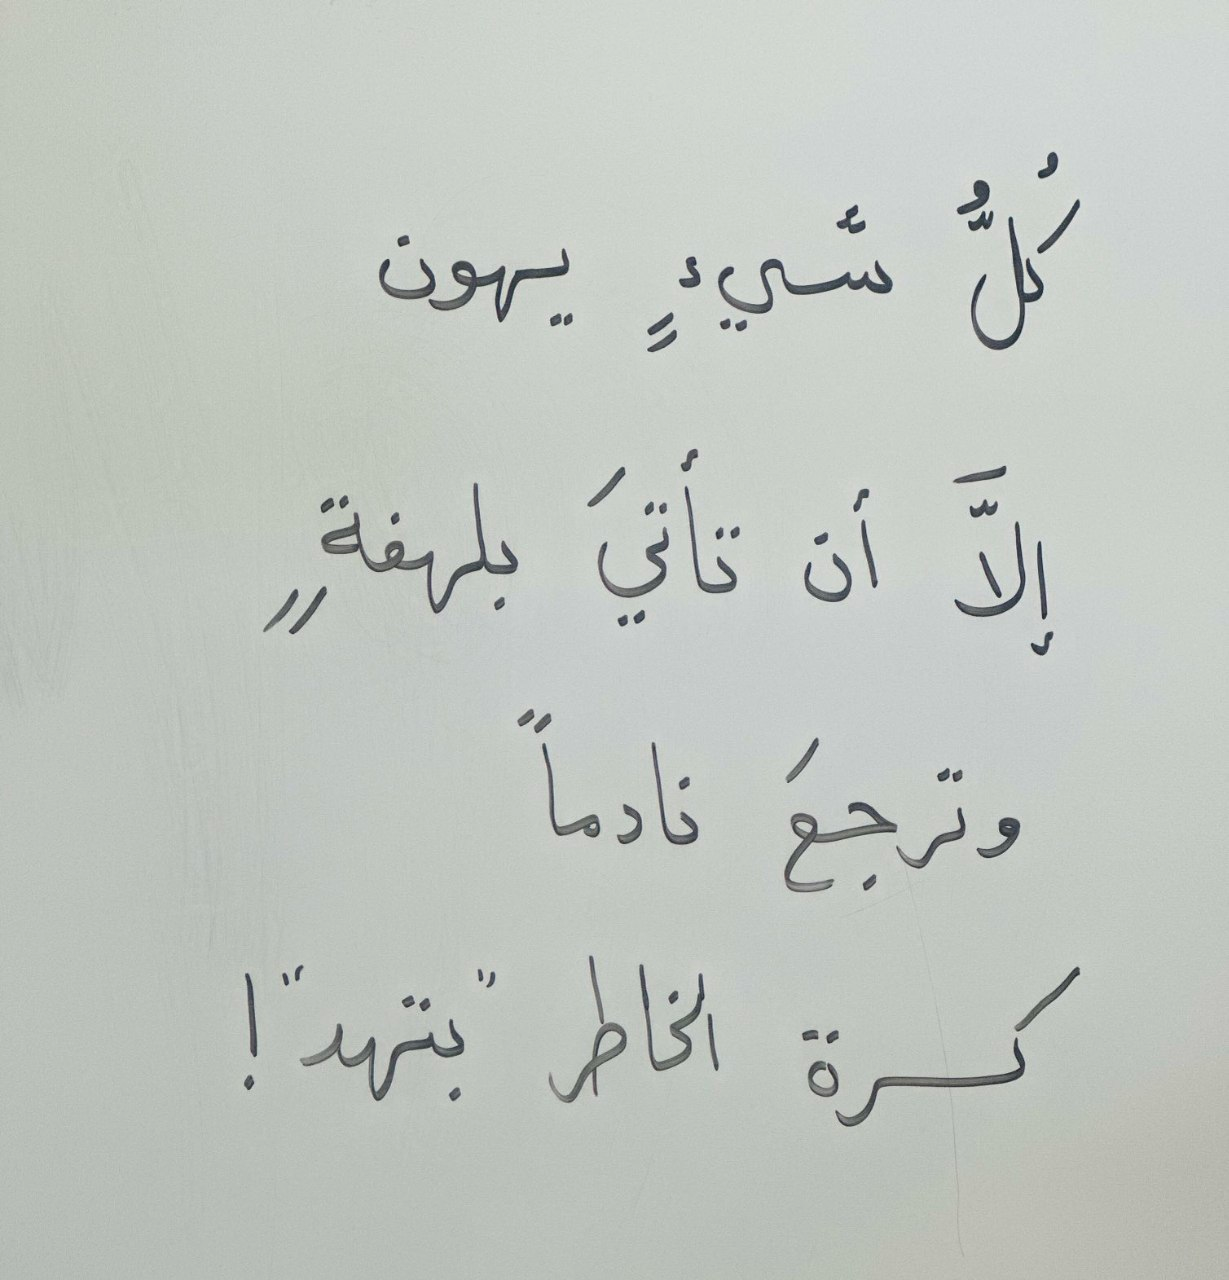 كُلُّ شَّيءٍ يهون
إلاَّ أن تأتيَ بلهفةٍ
وترجعَ نادماً
كسرة الخاطر "بتهد"!